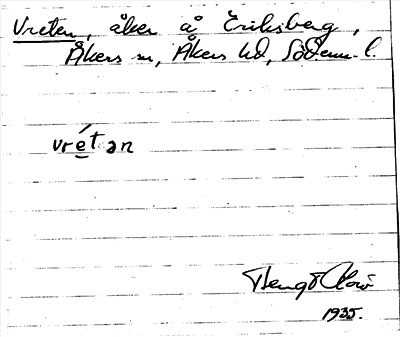 Vreten, åker å Eriksberg,
Åkers sn, Åkers hd, Söderm. l.
vré̱tən
Bengt
1935.